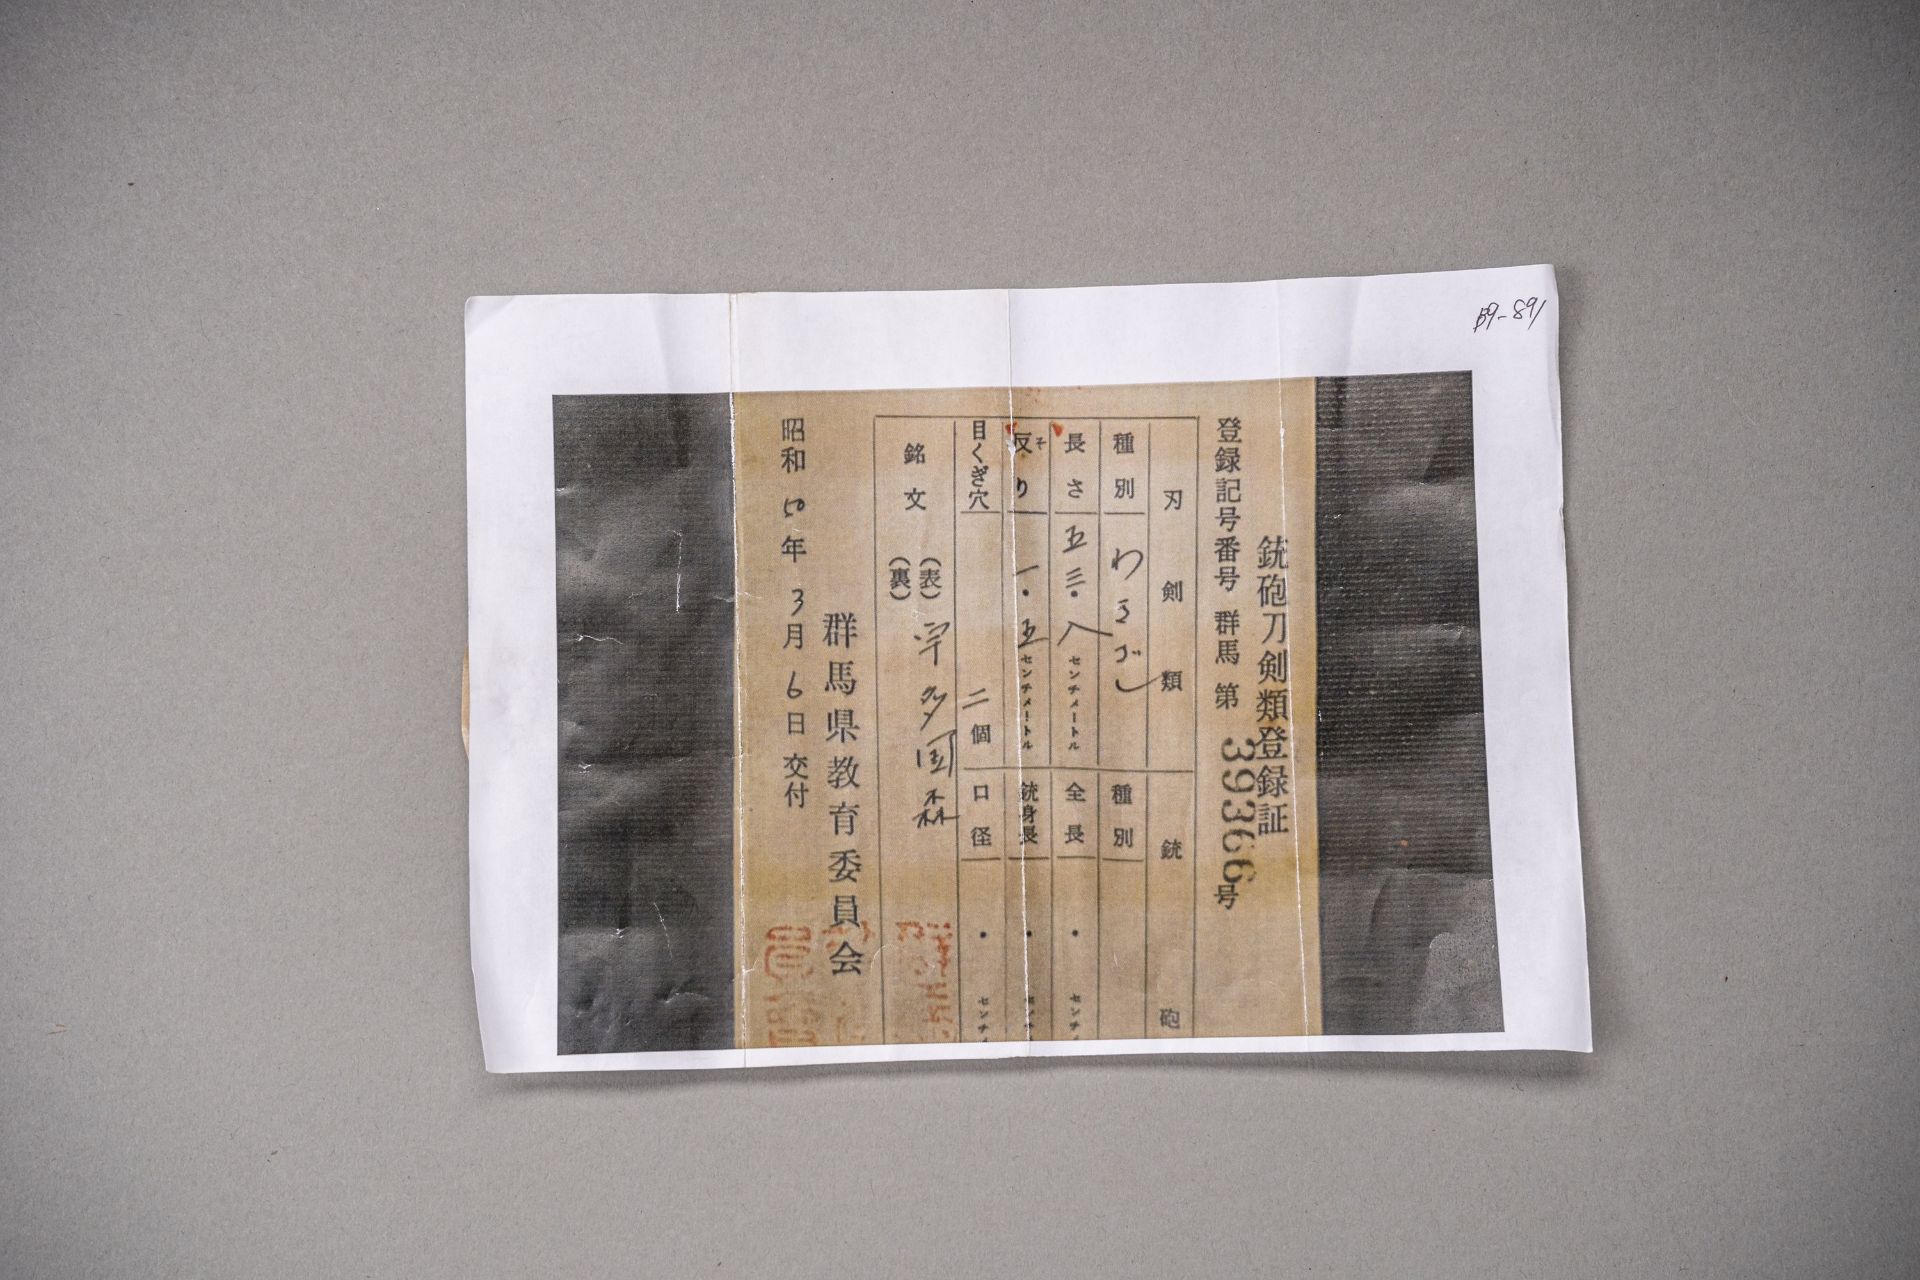 B9-891
銃砲刀剣類登録証
登録記号番号 群馬 第 39366 号
刃剣類 銃砲
種別 わきざし 種別
長さ 五三・八 センチメートル 全長 ・ センチメ
反り そ 一・五 センチメートル 銃身長 ・ センチメ
目くぎ穴 二個 口径 ・ センチメ
銘文 (表) 宇多国森
(裏)
群馬県教育委員会
昭和 50年 3月 6日 交付